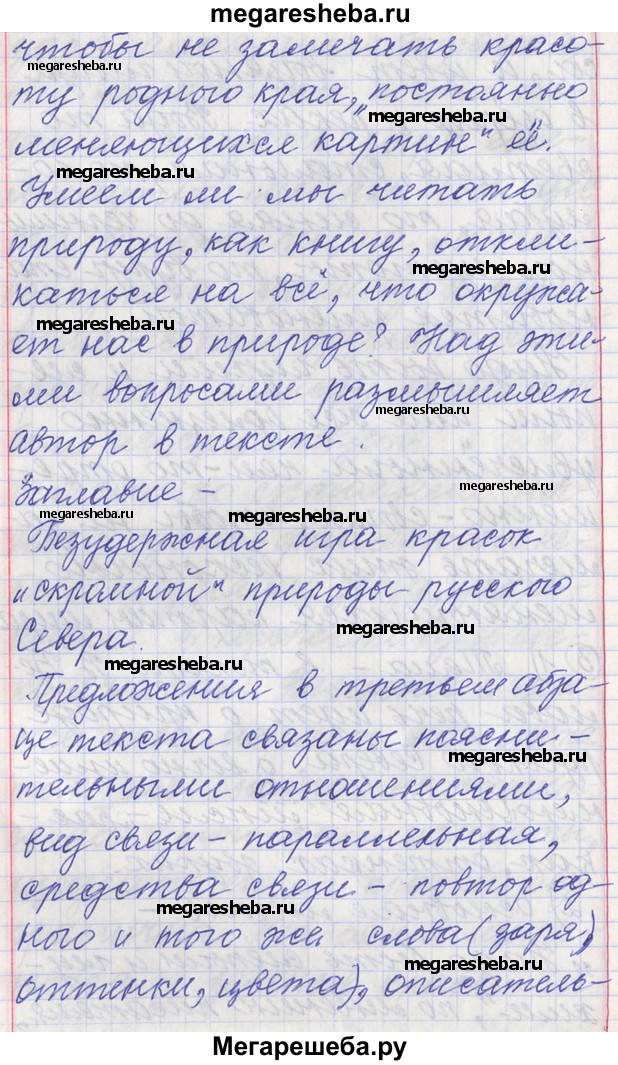 megaresheba.ru
чтобы не замечать красо-
megaresheba.ru megaresheba.ru
ту родного края, „постоянно
меняющихся картин“ её.
megaresheba.ru megaresheba.ru
Умеем ли мы читать
природу, как книгу, откли-
megaresheba.ru
каться на всё, что окружа-
megaresheba.ru
ет нас в природе? Над эти-
ми вопросами размышляет
megaresheba.ru
автор в тексте.
Заглавие –
megaresheba.ru megaresheba.ru megaresheba.ru
Безудержная игра красок
„скромной“ природы русского
Севера.
megaresheba.ru
megaresheba.ru
Предложения в третьем абза-
це текста связаны поясни-
megaresheba.ru
тельными отношениями,
вид связи – параллельная,
средства связи – повтор од-
megaresheba.ru
ного и того же слова (заря,
megaresheba.ru
оттенки, цвета), описатель-
Мегарешеба.ру